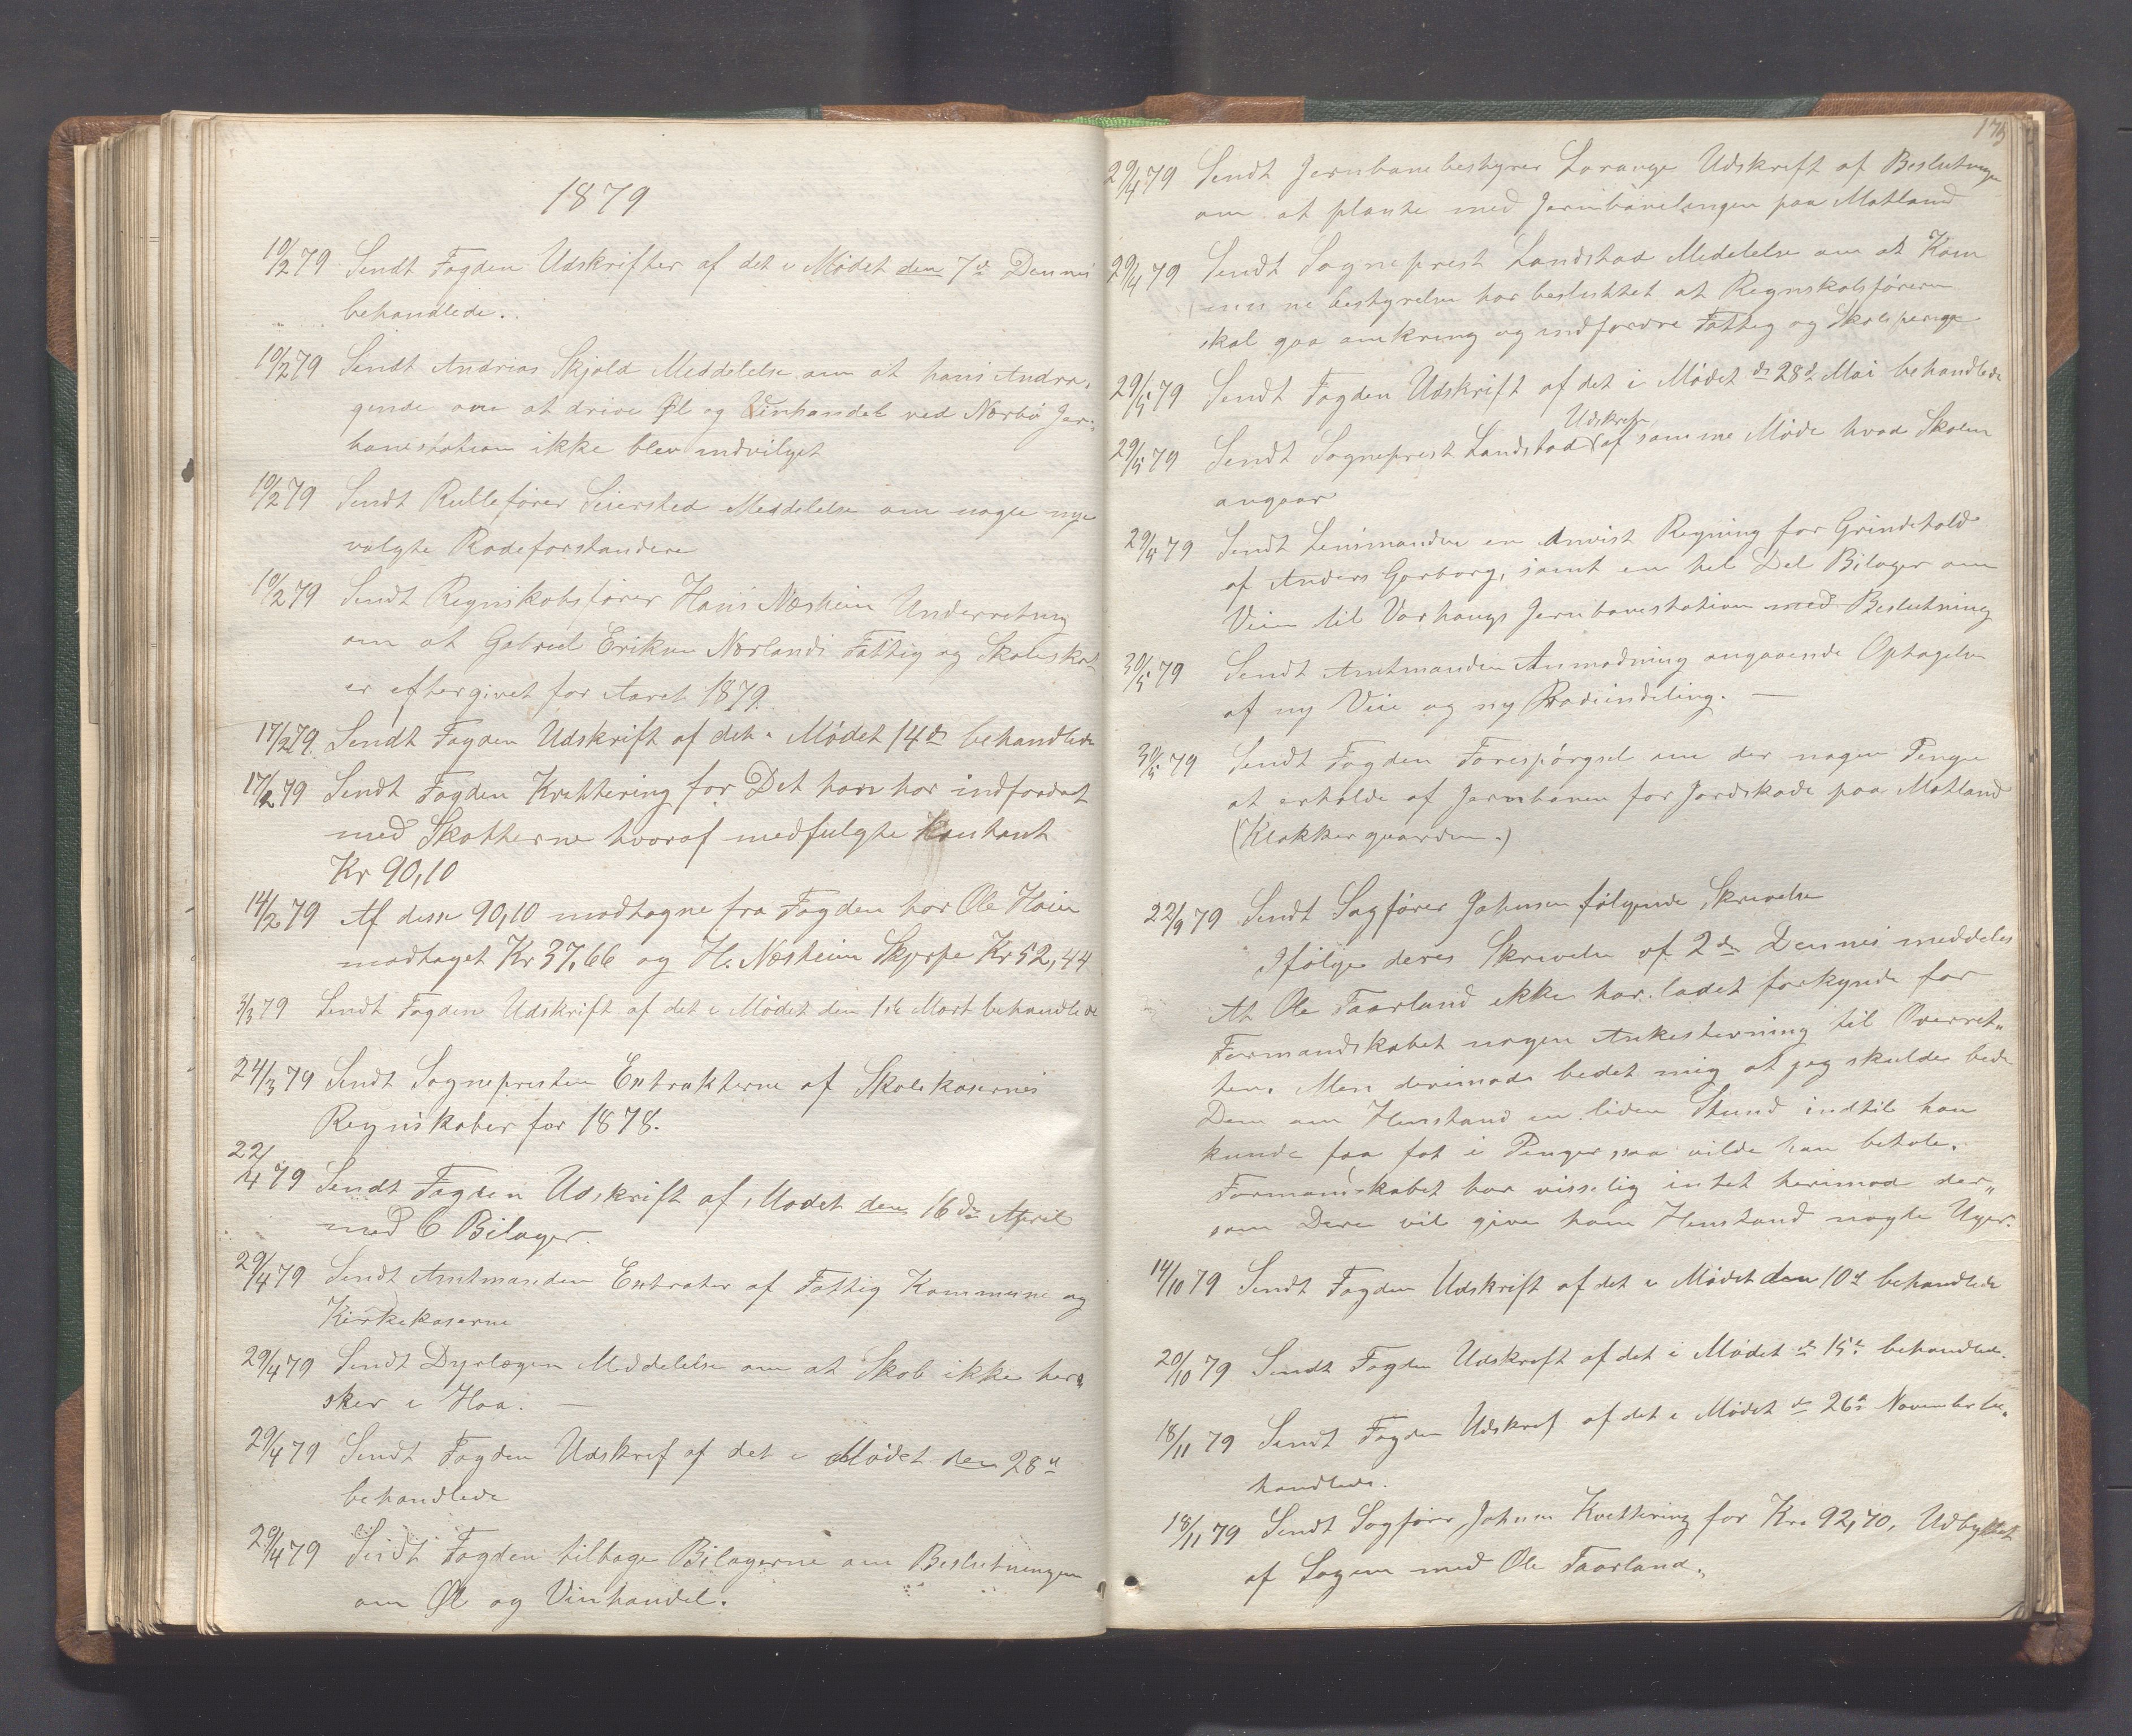 1879
10/2 79 Sendt Fogden Udskrifter af det i Mødet den 7de Dennes
behandlede.
10/2 79 Sendt Andrias Skjold Meddelelse om at hans Andra,
gende om at drive Øl og Vinhandel ved Nærbø Jer,
banestation ikke blev indvilget
10/2 79 Sendt Rullefører Seiersted Meddelelse om nogle nye
valgte Rodeforstandere
10/2 79 Sendt Regnskabsfører Hans Næsheim Underretning
om at Gabriel Eriksen Nærlands Fattig og Skoleskat
er eftergivet for Aaret 1879.
17/2 79. Sendt Fogden Udskrift af det i Mødet 14de behandlede
17/2 79 Sendt Fogden Kvittering for Det han har indfordret
med Skatterne hvoraf medfulgte Kontant
Kr 90,10
14/2 79 Af disse 90,10 modtagne fra Fogden har Ole Haim
modtaget Kr 37,66 og H. Næsheim Skjerpe Kr 52,44
3/3 79 Sendt Fogden Udskrift af det i Mødet den 1ste Mart behandlede
24/3 79 Sendt Sognepresten Extrakterne af Skolekasernes
Regnskaber for 1878.
22/4 79 Sendt Fogden Udskrift af Mødet den 16de April
med 6 Bilager.
29/4 79 Sendt Amtmanden Extrater af Fattig Kommune og
Kirkekaserne
29/4 79 Sendt Dyrlægen Meddelelse om at Skab ikke her,,
sker i Haa. —
29/4 79 Sendt Fogden Udskrif af det i Mødet den 28de
behandlede
29/4 79 Sendt Fogden tilbage Bilagerne om Beslutningen
om Øl og Vinhandel.
175
29/4 79 Sendt Jernbanebestyrer Lorange Udskrift af Beslutningen
om at plante med Jernbanelingen paa Motland
29/4 79 Sendt Sogneprest Landstad Medelelse om at Kom
mu ne bestyrelsen har besluttet at Regnskabsføreren
skal gaa omkring og indfordre Fattig og Skolepenge
29/5 79 Sendt Fogden Udskrift af det i Mødet dn 28de Mai behandlede
29/5 79 Sendt Sogneprest Landstad Udskrift af samme Møde hvad Skolen
angaar
29/5 79 Sendt Lensmanden en Anvist Regning for Grindehold
af Anders Garborg, samt en hel Del Bilager om
Veien til Varhaugs Jernbanestation med Beslutning
30/5 79 Sendt Amtmanden Anmodning angaaende Optagelse
af ny Veie og ny Rodeindeling. —
30/5 79 Sendt Fogden Forespørgsel om der nogen Penge
at erholde af Jernbanen for Jordskade paa Motland
(Klokkergaarden.)
22/9 79 Sendt Sagfører Johnsen følgende Skrivelse
Ifølge deres Skrivelse af 2den Dennes meddeles
At Ole Taarland ikke har ladet forkynde for
Formandskabet nogen Ankestevning til Overret,,
ten. Men derimod bedet mig at jeg skulde bede
Dem om Henstand en liden Stund indtil han
kunde faa fat i Penger saa vilde han betale.
Formandskabet har visselig intet herimod der,,
som Dere vil give ham Henstand nogle Uger.
14/10 79 Sendt Fogden Udskrift af det i Mødet den 10de behandlede
20/10 79 Sendt Fogden Udskrift af det i Mødet dn 15de behandlede.
18/11 79 Sendt Fogden Udskrif af det i Mødet dn 26de November be,,
handlede.
18/11 79 Sendt Sagfører Johnsen Kvittering for Kr. 92,70, Udbyttet
af Sagen med Ole Taarland.